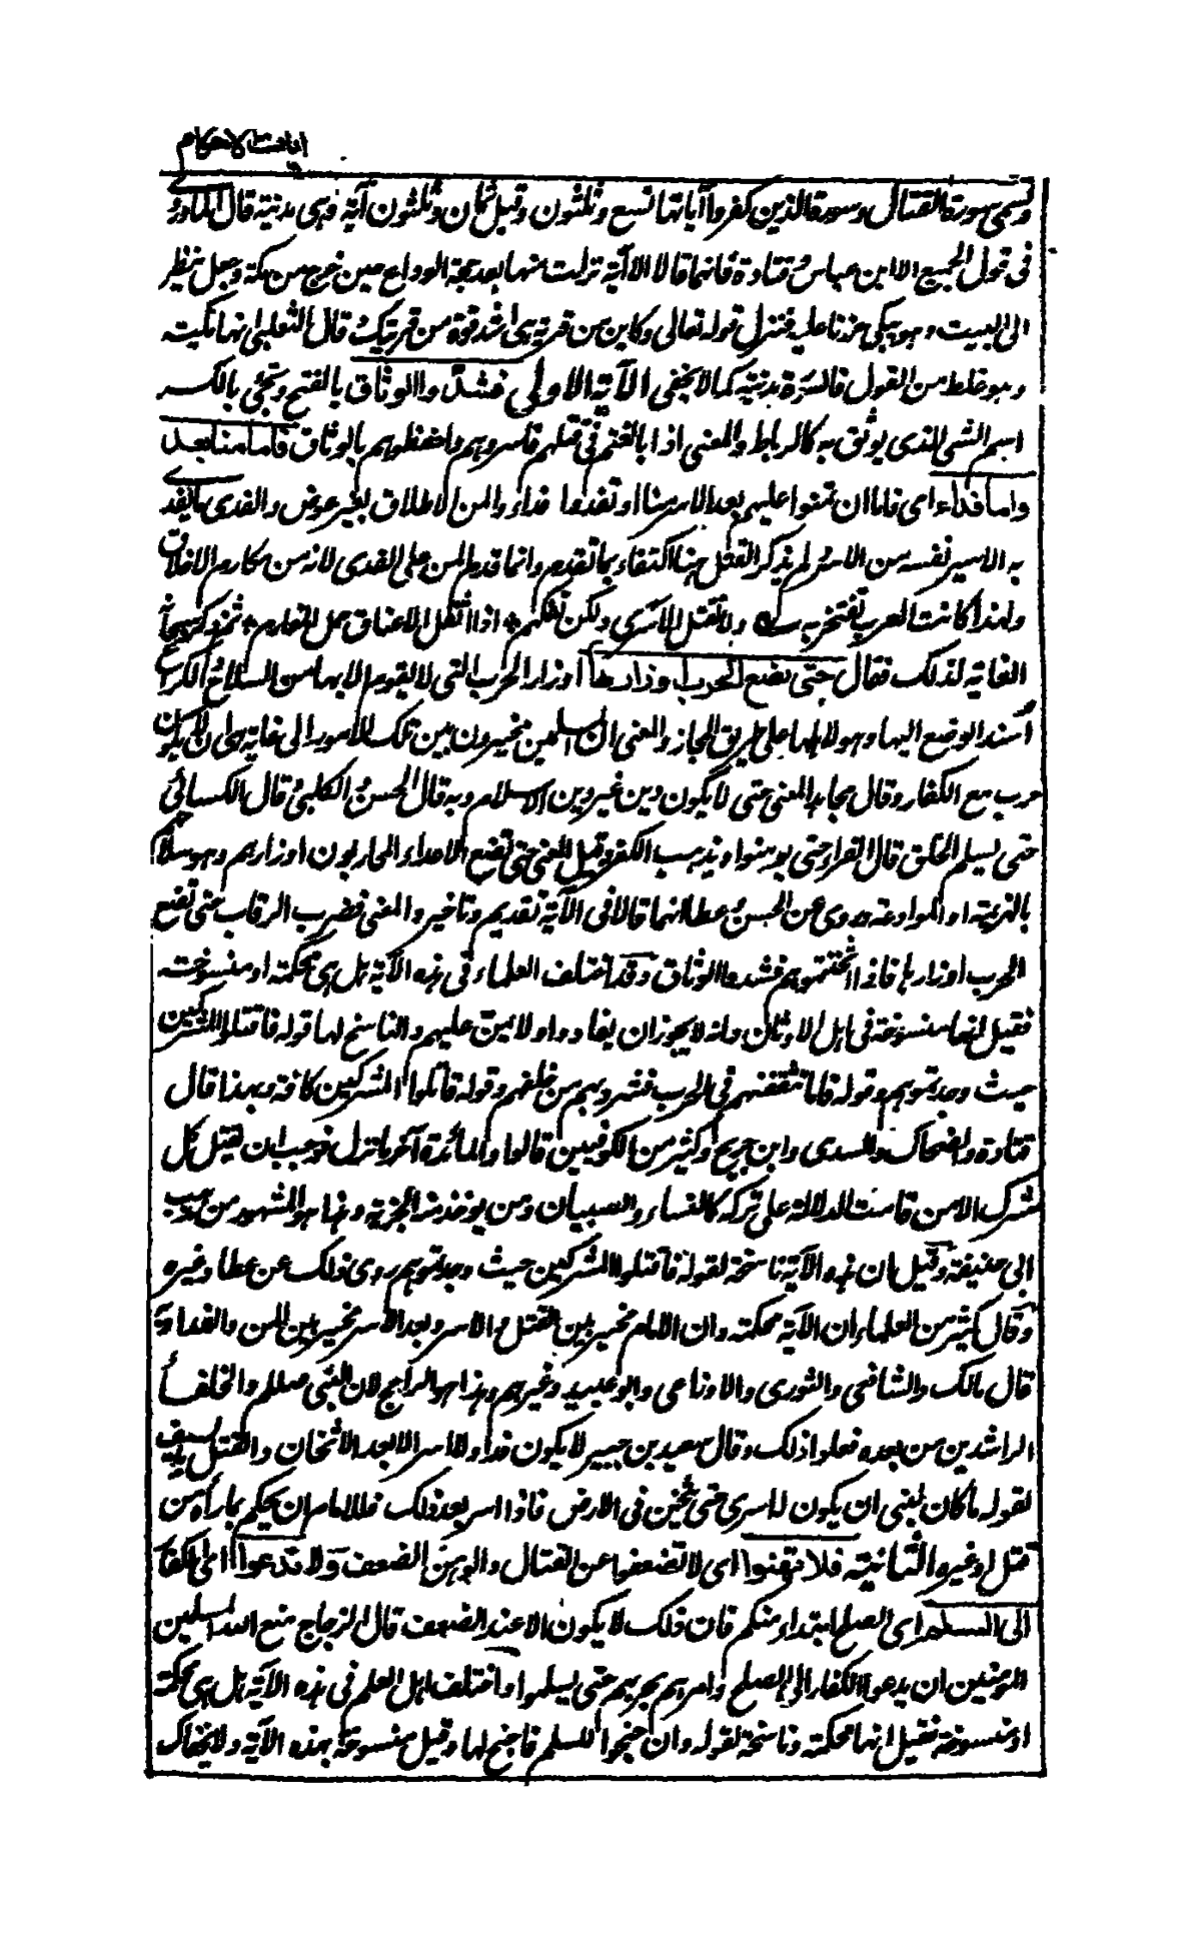 آيات الاحكام
وتسمى سورة القتال وسورة الذين كفروا آياتها تسع وثلثون وقيل ثمان وثلثون آية وهى مدنية قال الماوردى
فى قول الجميع الا ابن عباس وقتادة فانهما قالا الا آية نزلت منها بعد حجة الوداع حين خرج من مكة وجعل ينظر
الى البيت وهو يبكى حزنا عليه فنزل قوله تعالى وكاين من قرية هى اشد قوة من قريتك قال الثعلبى انها مكية
وهو غلط من القول فالسورة مدنية كما لا يخفى الآية الاولى فشدوا الوثاق بالفتح وتجئ بالكسر
اسم الشئ الذى يوثق به كالرباط والمعنى اذا بالغتم فى قتلهم فاسروهم واحفظوهم بالوثاق فاما منا بعد
واما فداء اى فاما ان تمنوا عليهم بعد الاسر منا او تفدوا فداء والمن الاطلاق بغير عوض والفدى ما يفدى
به الاسير نفسه من الاسر ولم يذكر القتل هنا اكتفاء بما تقدم وانما قدم المن على الفدى لانه من مكارم الاخلاق
ولهذا كانت العرب تفتخر به ولا نقتل الاسرى ولكن نفكهم اذا اثقل الاعناق حمل المغارم ثم ذكر سبحانه
الغاية لذلك فقال حتى تضع الحرب اوزارها اوزار الحرب التى لا يقوم الا بها من السلاح والكراع
أسند الوضع اليها وهو لاهلها على طريق المجاز والمعنى ان المسلمين مخيرون بين تلك الامور الى غاية هى ان لا يكون
حرب مع الكفار وقال مجاهد المعنى حتى لا يكون دين غير دين الاسلام وبه قال الحسن والكلبى قال الكسائى
حتى يسلم الخلق قال الفراء حتى يومنوا ويذهب الكفر وقيل المعنى حتى تضع الاعداء المحاربون اوزارهم وهو سلاحهم
بالهزيمة او الموادعة وروى عن الحسن وعطا انهما قالا فى الآية تقديم وتاخير والمعنى فضرب الرقاب حتى تضع
الحرب اوزارها فاذا اثخنتموهم فشدوا الوثاق وقد اختلف العلماء فى هذه الآية هل هى محكمة او منسوخة
فقيل انها منسوخة فى اهل الاوثان وانه لا يجوز ان يفادوا ولا يمن عليهم والناسخ لها قوله فاقتلوا المشركين
حيث وجدتموهم وقوله فاما تثقفنهم فى الحرب فشرد بهم من خلفهم وقوله قاتلوا المشركين كافة وبهذا قال
قتادة والضحاك والسدى وابن جريج وكثير من الكوفيين قالوا والمائدة آخر ما نزل فوجب ان يقتل كل
مشرك الا من قامت الدلالة على تركه كالنساء والصبيان ومن يوخذ منه الجزية وهذا هو المشهور من مذهب
ابى حنيفة وقيل ان هذه الآية ناسخة لقوله فاقتلوا المشركين حيث وجدتموهم روى ذلك عن عطا وغيره
وقال كثير من العلماء ان الآية محكمة وان الامام مخير بين القتل والاسر وبعد الاسر مخير بين المن والفداء وبه
قال مالك والشافعى والثورى والاوزاعى وابو عبيد وغيرهم وهذا هو الراجح لان النبى صلعم والخلفاء
الراشدين من بعده فعلوا ذلك وقال سعيد بن جبير لا يكون فداء ولا اسر الا بعد الاثخان والقتل بالسيف
لقوله ما كان لنبى ان يكون له اسرى حتى يثخن فى الارض فاذا اسر بعد ذلك فللامام ان يحكم بما رأه من
قتل او غيره الثانية فلا تهنوا اى لا تضعفوا عن القتال والوهن الضعف ولا تدعوا اى الكفار
الى السلم اى الصلح ابتداء منكم فان ذلك لا يكون الا عند الضعف قال الزجاج منع الله المسلمين
المومنين ان يدعوا الكفار الى الصلح وامرهم بحربهم حتى يسلموا واختلف اهل العلم فى هذه الآية هل هى محكمة
او منسوخة فقيل انها محكمة وناسخة لقوله وان جنحوا للسلم فاجنح لها وقيل منسوخة بهذه الآية ولا يخفاك